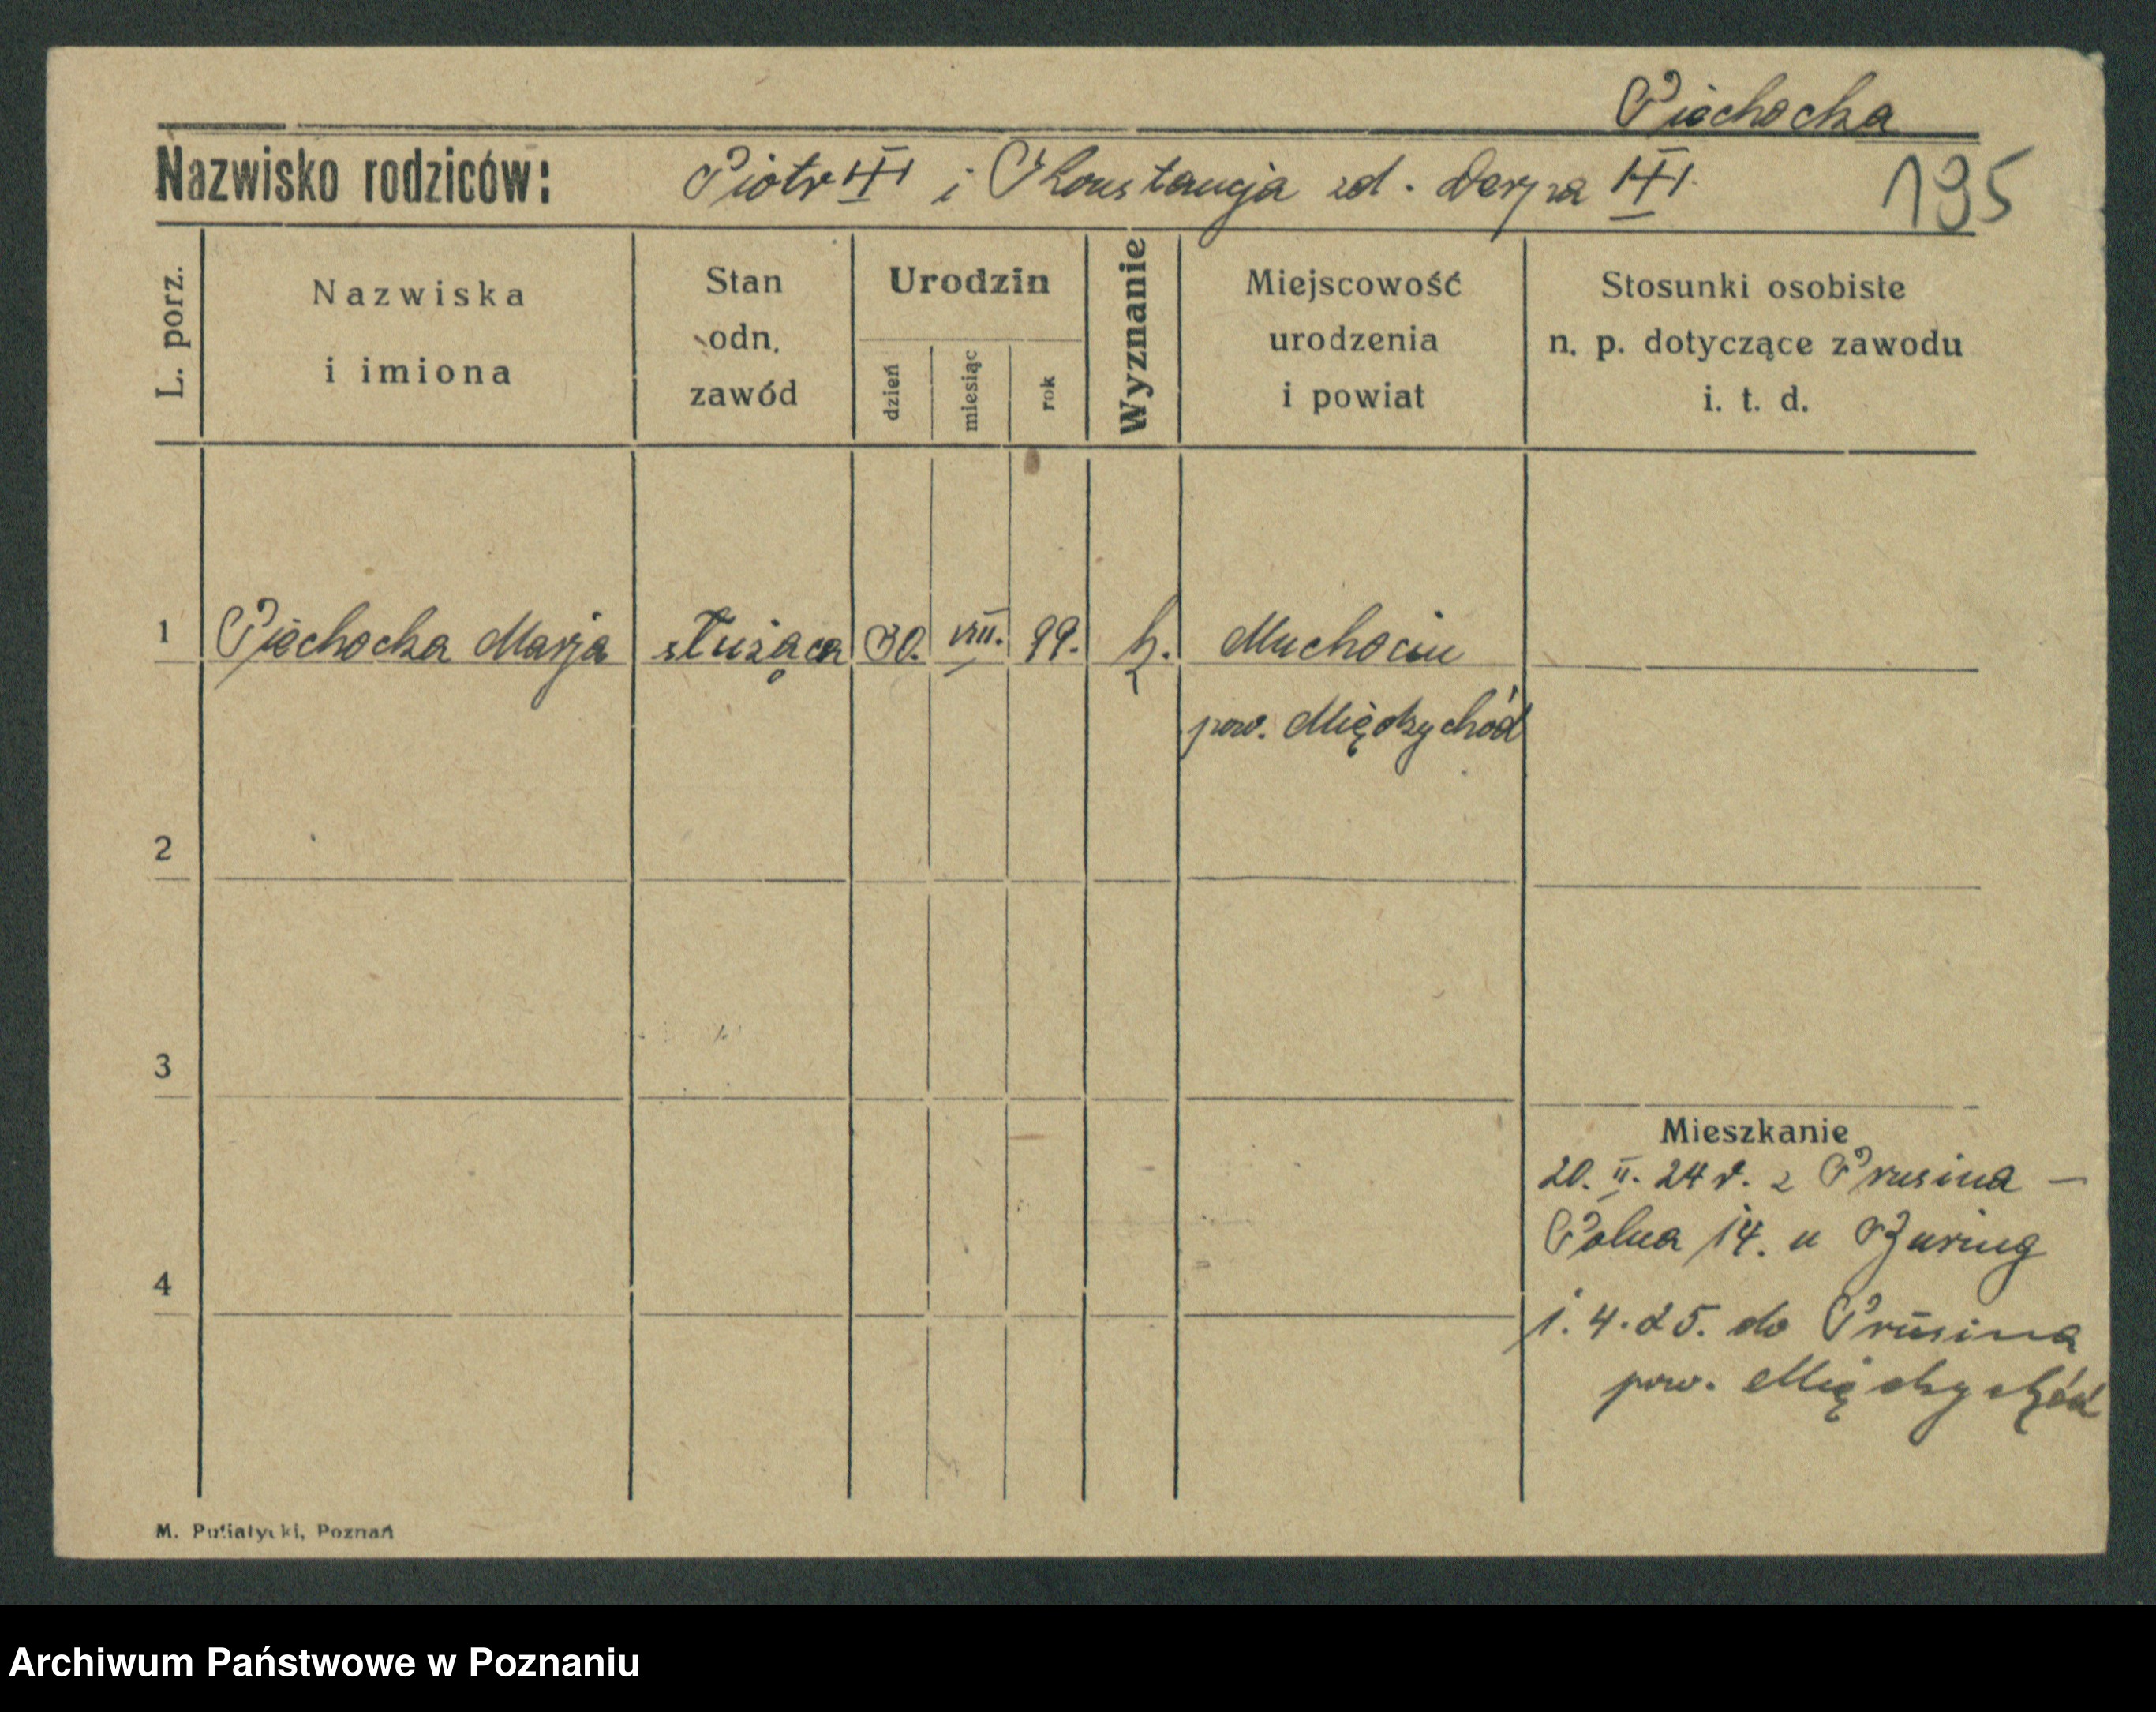 Piechocka
Nazwisko rodziców: Piotr i Konstancja zd. Derpa
195
L. porz.
Nazwiska
i imiona
Stan
odn.
zawód
Urodzin
dzień
miesiąc
rok
Wyznanie
Miejscowość
urodzenia
i powiat
Stosunki osobiste
n. p. dotyczące zawodu
i. t. d.
1 Piechocka Marja służąca 30. VIII. 99. k. Muchocin
pow. Międzychód
2
3
Mieszkanie
20. II. 24 r. z Prusina —
Polna 14. u
4
1. 4. 25. do Prusina
pow. Międzychód
M. Putiatycki, Poznań
Archiwum Państwowe w Poznaniu